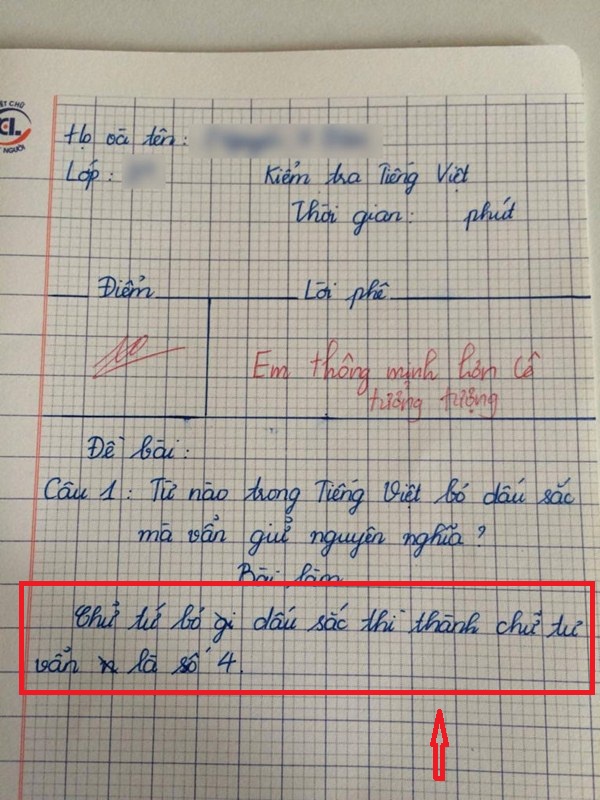 ẾT CHỮ
CL
NGƯỜI
Họ và tên:
Lớp:
Kiểm tra Tiếng Việt
Thời gian: phút
Điểm
Lời phê
10
Em thông minh hơn Cô
tưởng tượng
Đề bài:
Câu 1: Từ nào trong Tiếng Việt bỏ dấu sắc
mà vẩn giử nguyên nghĩa?
Bài làm
Chử tứ bỏ gi dấu sắc thì thành chử tư
vẩn là số 4.